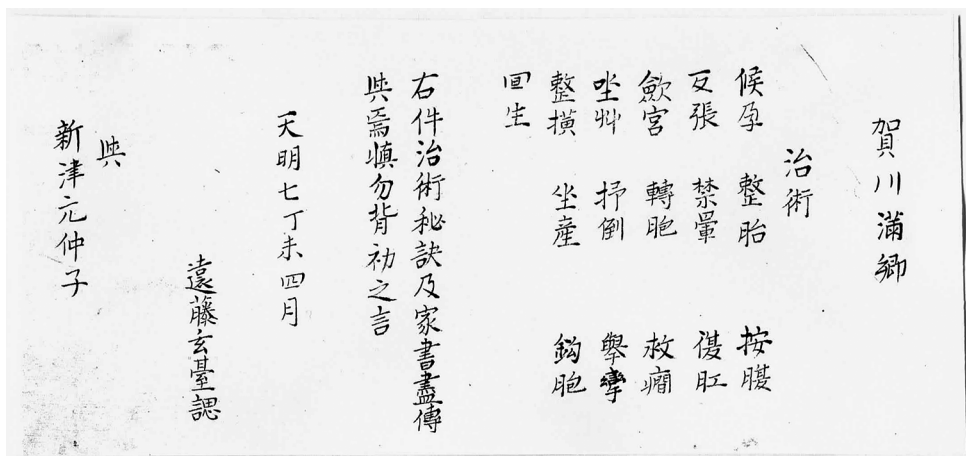 賀川滿卿
治術
候孕 整胎 按腹
反張 禁暈 復肛
斂宮 轉胞 救癇
坐艸 抒倒 舉攣
整橫 坐產 鈎胞
回生
右件治術秘訣及家書盡傳
與焉慎勿背初之言
天明七丁未四月
遠藤玄臺認
與
新津元仲子